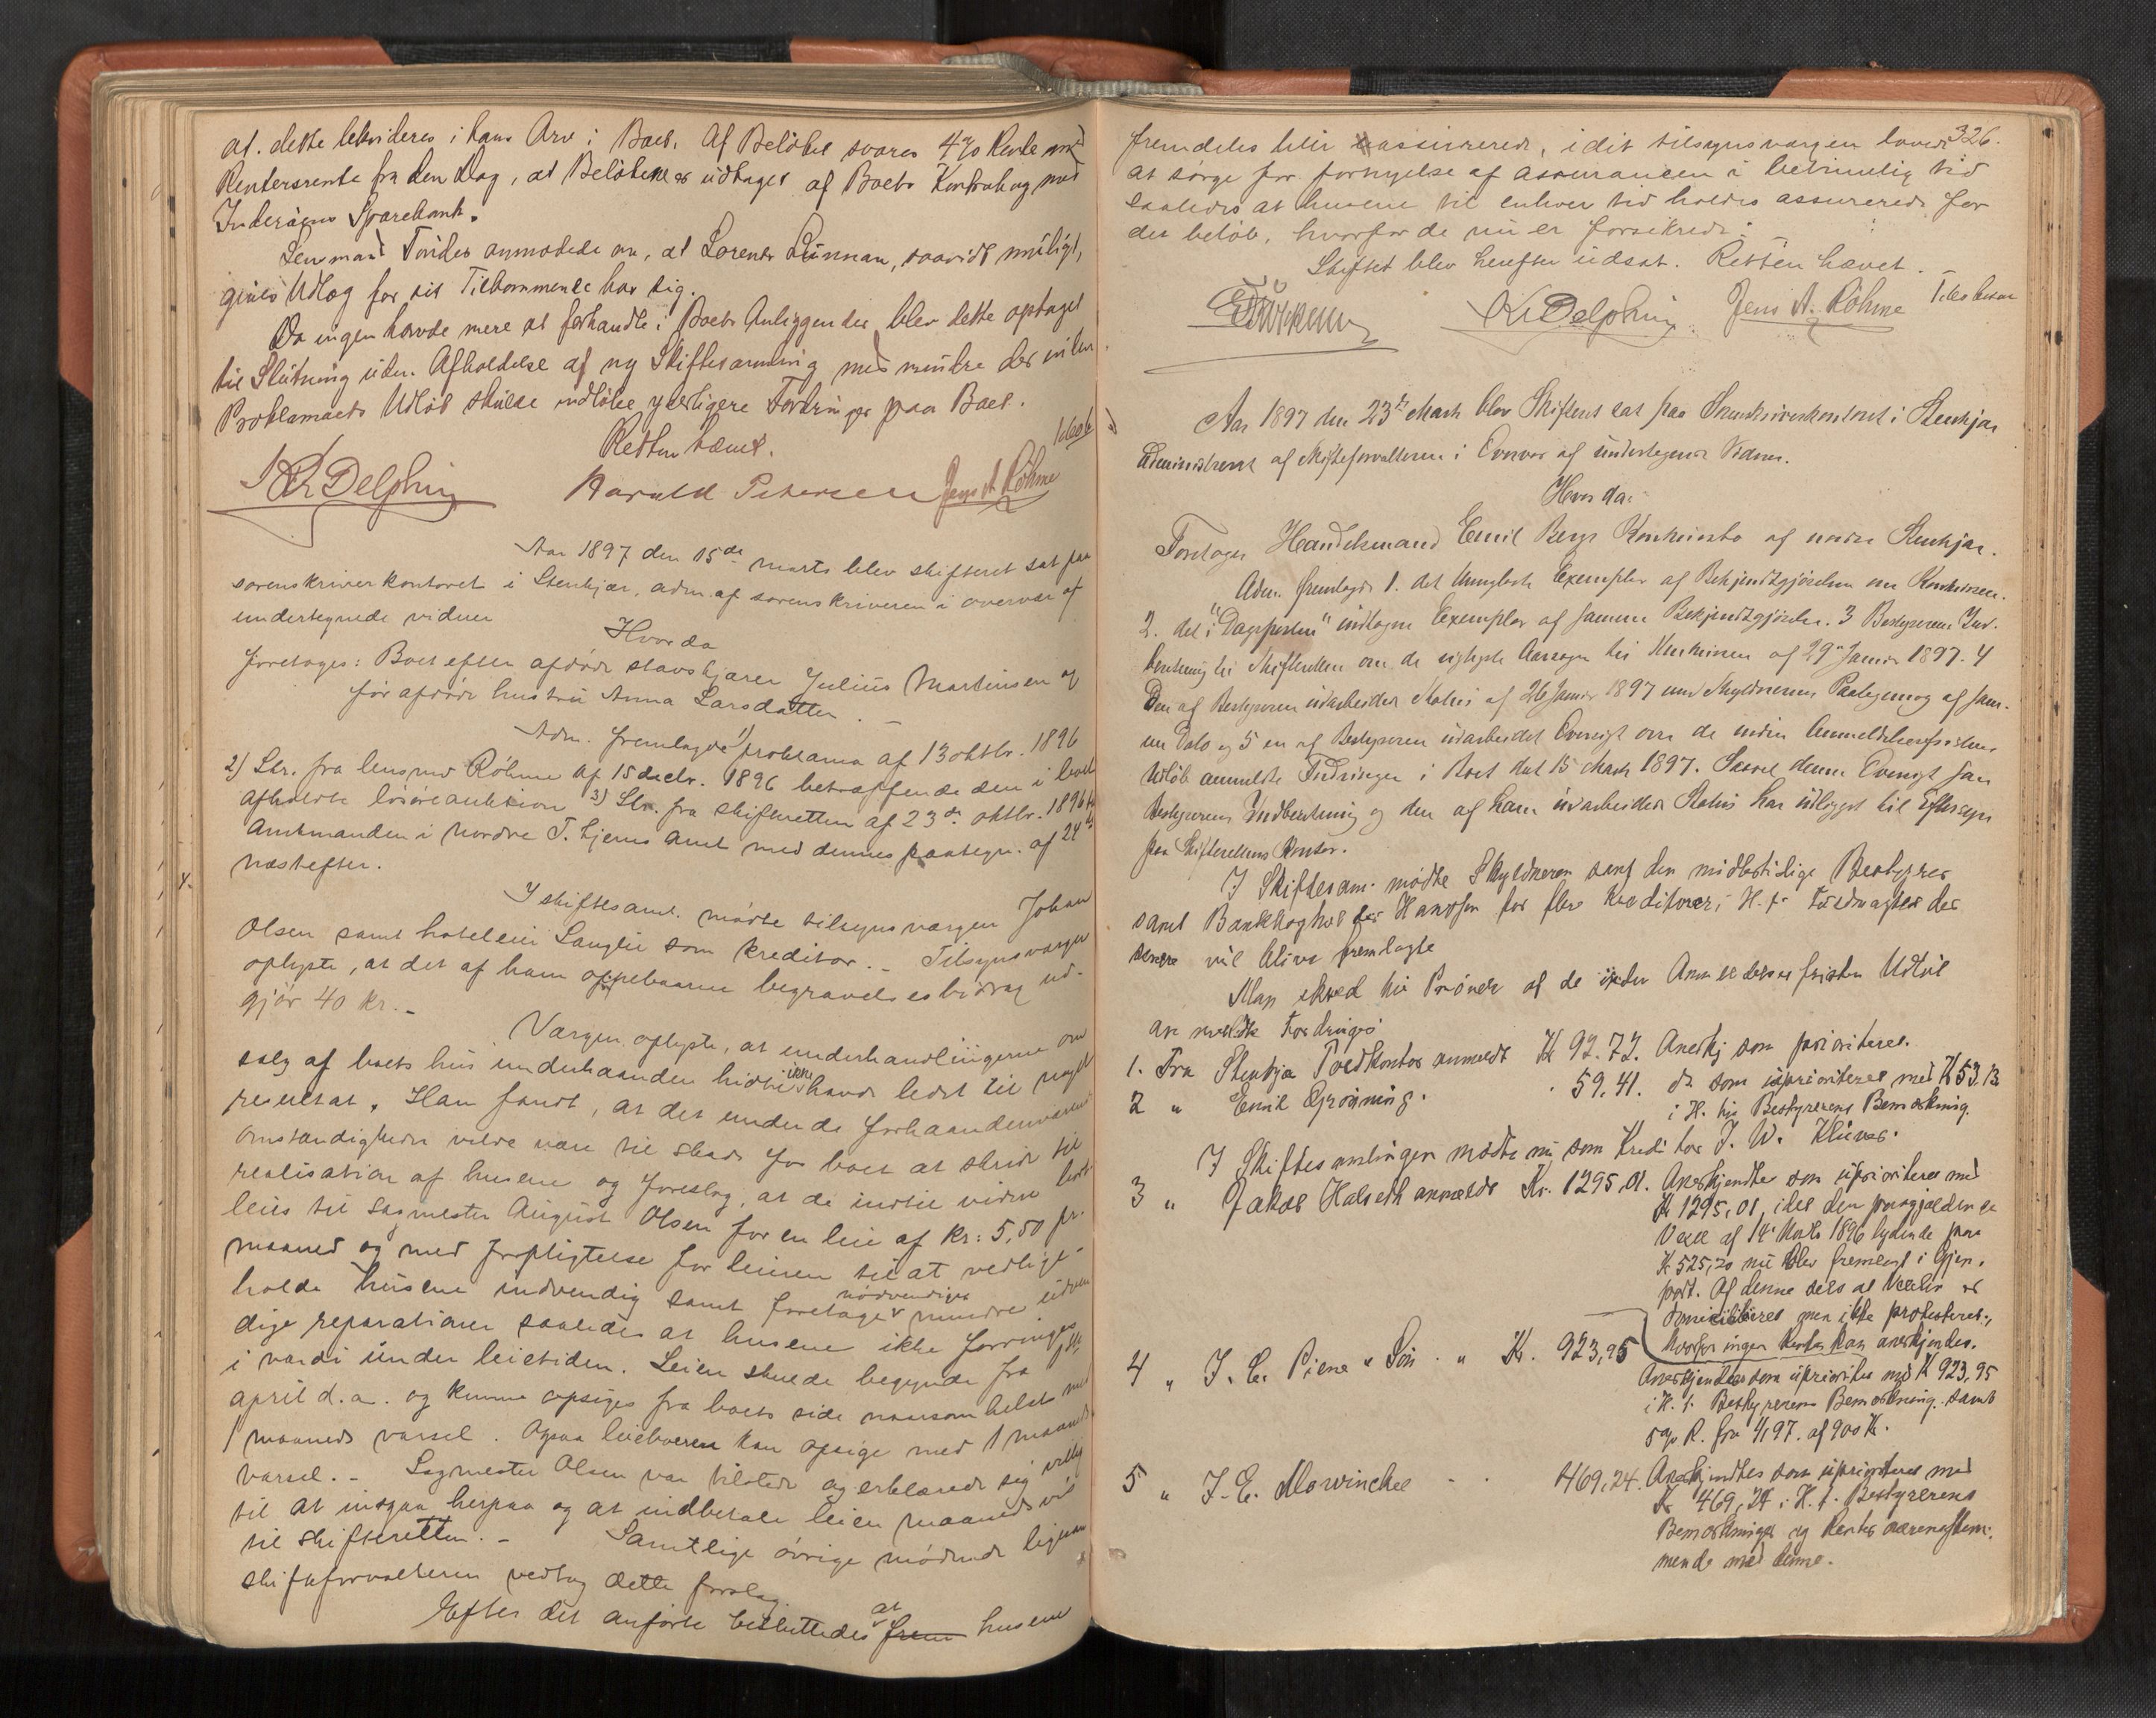 at dette likvideres i hans Arv i Boet. Af Beløbet svares 4% Rente med
Rentersrente fra den Dag, at Beløbene er udtaget af Boets Kontrabog med
Inderøens Sparebank.
Lensmand Tønder anmodede om, at Lorents Lunnan, saavidt muligt,
gives Udlæg for sit Tilkommende hos sig.
Da ingen havde mere at forhandle i Boets Anliggender blev dette optaget
til Slutning uden Afholdelse af ny Skiftesamling med mindre der inden
Proklamaets Udløb skulde indløbe yderligere Fordringer paa Boet.
Retten hævet.
Kr Delphin Harald Petersen Jens A. Röhme
Aar 1897 den 15de marts blev skifteret sat paa
sorenskriverkontoret i Stenkjær, adm. af sorenskriveren i overvær af
undertegnede vidner
Hvorda
foretoges: Boet efter afdøde stavskjærer Julius Martinsen og
før afdøde hustru Anna Larsdatter. –
Adm. fremlagde 1) proklama af 13 oktbr. 1896
2) Skr. fra lensmd Röhme af 15 decbr. 1896 betræffende den i boet
afholdte løsøreauktion 3) Skr. fra skifteretten af 23de oktbr. 1896 til
Amtmanden i Nordre T.hjems amt med dennes paategn. af 24de
næstefter.
I skiftesaml. mødte tilsynsværgen Johan
Olsen samt hoteleier Langlie som kreditor. – Tilsynsværgen
oplyste, at det af ham oppebaarne begravelsesbidrag ud-
gjør 40 kr. –
Værgen oplyste, at underhandlingerne om
salg af boets hus underhaanden hidtil ikke havde ledet til noget
resultat. Han fandt, at det under de forhaandenværende
omstændigheder vilde være til skade for boet at skride til
realisation af husene og foreslog, at de indtil videre bort-
leies til sagmester August Olsen for en leie af kr: 5,50 pr.
maaned og med forpligtelse for leieren til at vedlige-
holde husene indvendig samt foretage nødvendige mindre udven-
dige reparationer saaledes at husene ikke forringes
i værdi under leietiden. Leien skulde begynde fra 1ste
april d.a. og kunne opsiges fra boets side naarsomhelst med
1 maaneds varsel. Ogsaa leieboeren kan opsige med 1 maaneds
varsel. – Sagmester Olsen var tilstede og erklærede sig villig
til at indgaa herpaa og at indbetale leien maanedsvis
til skifteretten. – Samtlige øvrige mødende ligesom
skifteforvalteren vedtog dette forslag.
Efter det anførte besluttedes at husene
326.
fremdeles blir assurerede, idet tilsynsværgen lovede
at sørge for fornyelse af assurancen i betimelig tid
saaledes at husene til enhver tid holdes assurerede for
det beløb, hvorfor de nu er forsikrede. –
Skiftet blev herefter udsat. Retten hævet. –
Kr Delphin Jens A. Röhme
Aar 1897 den 23de Marts blev Skifteret sat paa Sorenskriverkontoret i Stenkjær
administreret af Skifteforvalteren i Overvær af undertegnede Vidner.
Hvorda:
Foretoges Handelsmand Emil Bergs Konkursbo af nordre Stenkjær.
Adm. fremlagde 1. det Exemplar af Bekjendtgjørelsen om Konkursen.
2. det i "Dagsposten" indtagne Exemplar af samme Bekjendtgjørelse. 3 Bestyrerens Ind-
beretning til Skifteretten om de vigtigste Aarsager til Konkursen af 29de Januar 1897. 4
Den af Bestyreren udarbeidede Status af 26 Januar 1897 med Skyldnerens Paategning af sam-
me Dato og 5 en af Bestyreren udarbeidet Oversigt over de inden Anmeldelsesfristens
Udløb anmeldte Fordringer i Boet dat 15 Marts 1897. Saavel denne Oversigt som
Bestyrerens Indberetning og den af ham udarbeidede Status har udligget til Eftersyn
paa Skifterettens Kontor.
I Skiftesaml. mødte Skyldneren samt den midlertidige Bestyrer
samt Bankbogholder Hansen for flere Kreditorer, H. f. Fuldmagter der
senere vil blive fremlagte
Man skred til Prøvelse af de inden Anmeldelsesfristen Udløb
anmeldte Fordringer
1. Fra Stenkjær Toldkontor anmeldt Kr 92.72. Anerkj som prioriteret.
2 " Emil Grønning. 59.41. do som uprioriteret med Kr 53.13
i H. til Bestyrerens Bemærkning.
I Skiftesamlingen mødte nu som Kreditor I. W. Klüver.
3 " Jakob Halseth anmeldt Kr. 1295,01. Anerkjendtes som uprioriteret med
Kr 1295,01, idet den paagjældende
Vexel af 14 Marts 1896 lydende paa
Kr 525,20 nu blev fremlagt i Gjen-
part. Af denne sees at Vexlen er
domicilieret men ikke protesteret,
hvorfor ingen Renter kan anerkjendes.
4 " I. C. Piene & Søn " Kr. 923,95
Anerkjendtes som uprioritet med Kr 923,95
i H. t. Bestyrerens Bemærkning samt
5% R. fra 4/1 97. af 900 Kr.
5 " I. E. Mowinckel 469,24. Anerkjendtes som uprioriteret med
Kr 469,24 i H. t. Bestyrerens
Bemærkninger og Renter overensstem-
mende med denne.